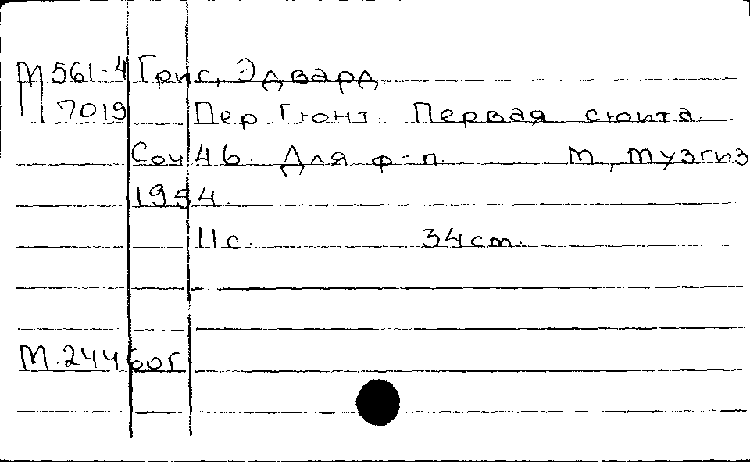 М 561-4 Григ, Эдвард
7019 Пер Гюнт. Первая сюита.
Соч 46. Для ф-п. М, Музгиз
1954.
11 с. 34 cm.
М. 244 60г